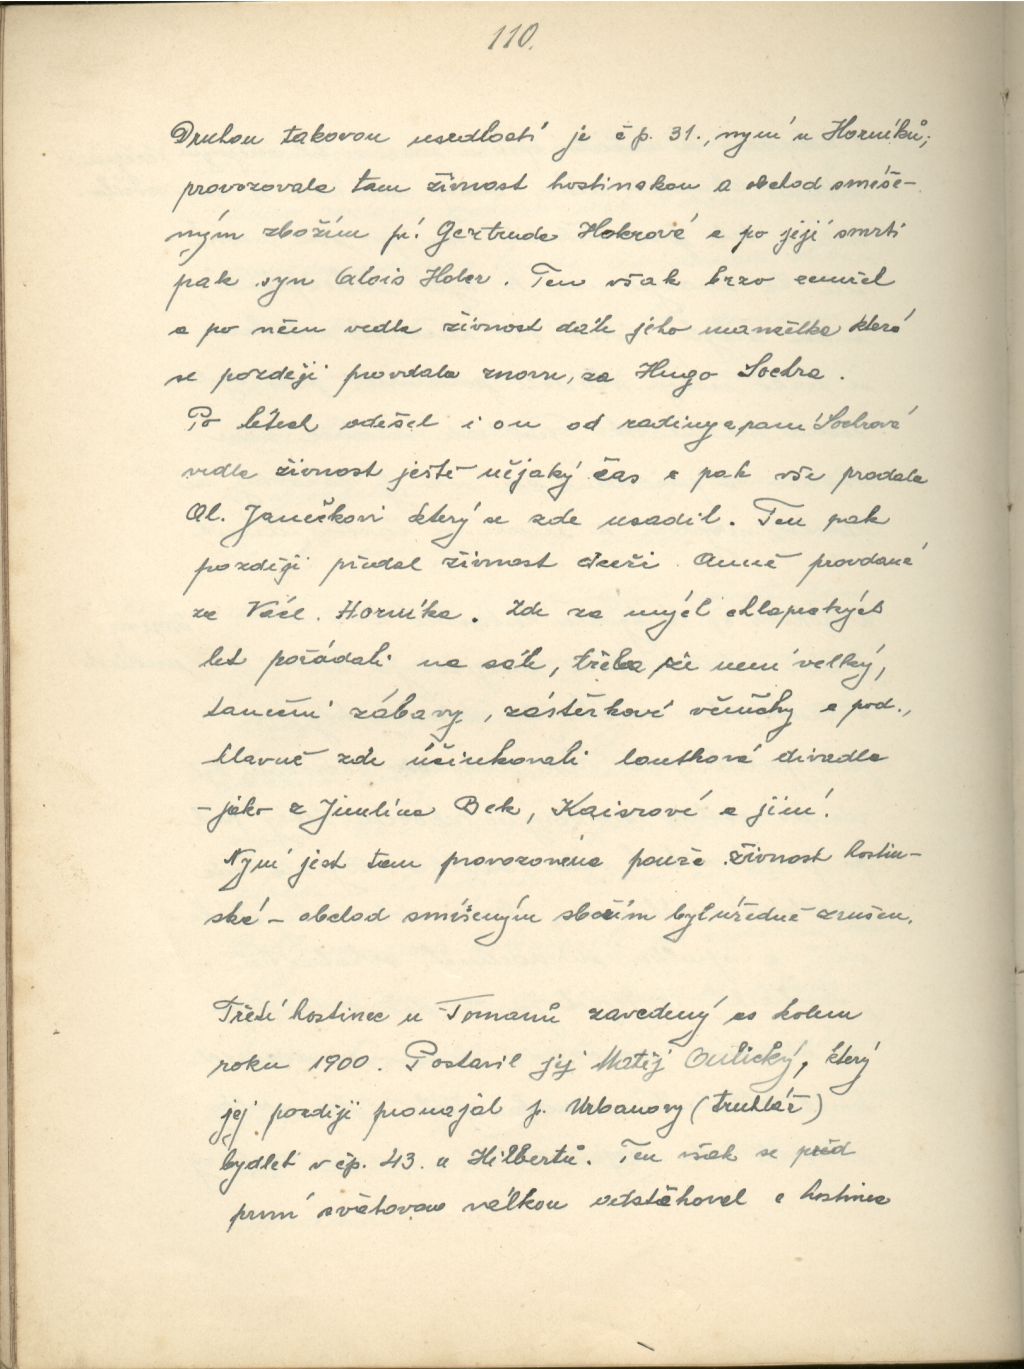 110.
Druhou takovou usedlostí je čp. 31., nyní u Horníků;
provozovala tam živnost hostinskou a obchod smíše-
ným zbožím pí. Gertruda Hokrová a po její smrti
pak syn Alois Hoker. Ten však brzo zemřel
a po něm vedla živnost dále jeho manželka která
se později provdala znovu, za Hugo Sochra.
Po letech odešel i on od rodiny a paní Sochrová
vedla živnost ještě nějaký čas a pak vše prodala
Al. Janečkovi který se zde usadil. Ten pak
později předal živnost dceři Anně provdané
za Václ. Horníka. Zde za mých chlapeckých
let pořádali na sále, třeba že není velký,
taneční zábavy, zástěrkové věnečky a pod.,
hlavně zde účinkovali loutková divadla
- jako z Jimlína Bek, Kaisrové a jiní.
Nyní jest tam provozována pouze živnost hostin-
ská - obchod smíšeným zbožím byl úředně zrušen.
Třetí hostinec u Tomanů zavedený as kolem
roku 1900. Postavil jej Matěj Oulický, který
jej později pronajal p. Urbanovy (truhlář)
bydlel v čp. 43. u Hilbertů. Ten však se před
první světovou válkou odstěhoval a hostinec